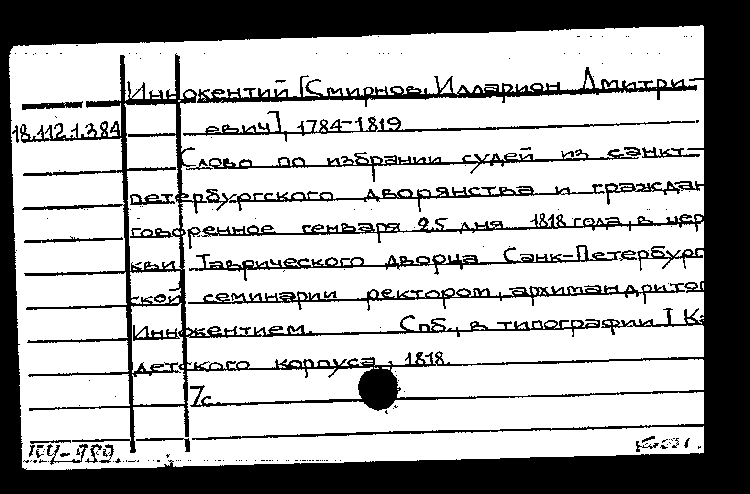 Иннокентий [Смирнов, Илларион Дмитри-
18.112.1.384 евич], 1784-1819
Слово по избрании судей из санкт-
петербургского дворянства и граждан
говоренное генваря 25 дня 1818 года, в цер
кви Таврического дворца Санк-Петербург
ской семинарии ректором, архимандритом
Иннокентием. Спб., в типографии I Ка
детского корпуса, 1818.
7с.